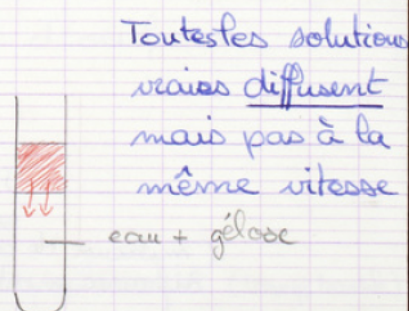 Toutes les solutions
vraies diffusent
mais pas à la
même vitesse
eau + gélose